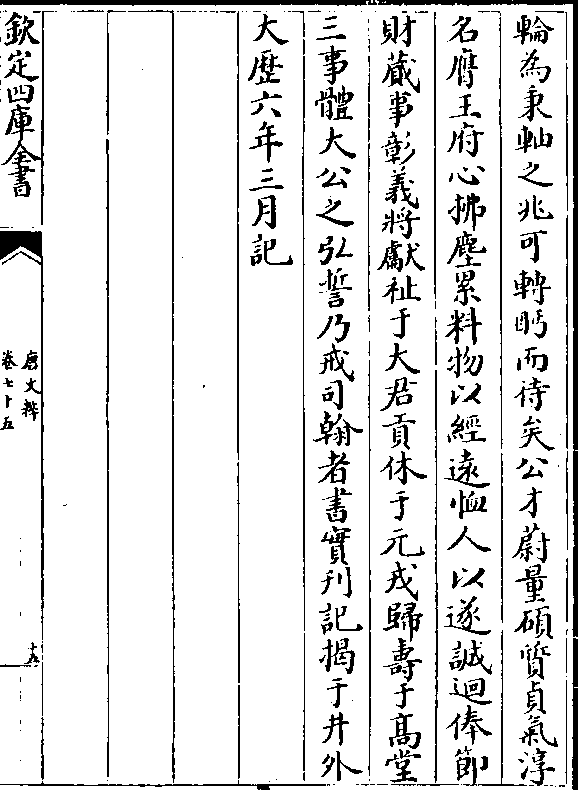 輪為秉軸之兆可轉眄而待矣公才蔚量碩質貞氣淳
名膺王府心拂塵累料物以經遠恤人以遂誠迴俸節
財蕆事彰義將獻祉于大君貢休于元戎歸壽于髙堂
三事體大公之弘誓乃戒司翰者書實刋記揭于井外
大歴六年三月記
欽定四庫全書
唐文粹
卷七十五
十五